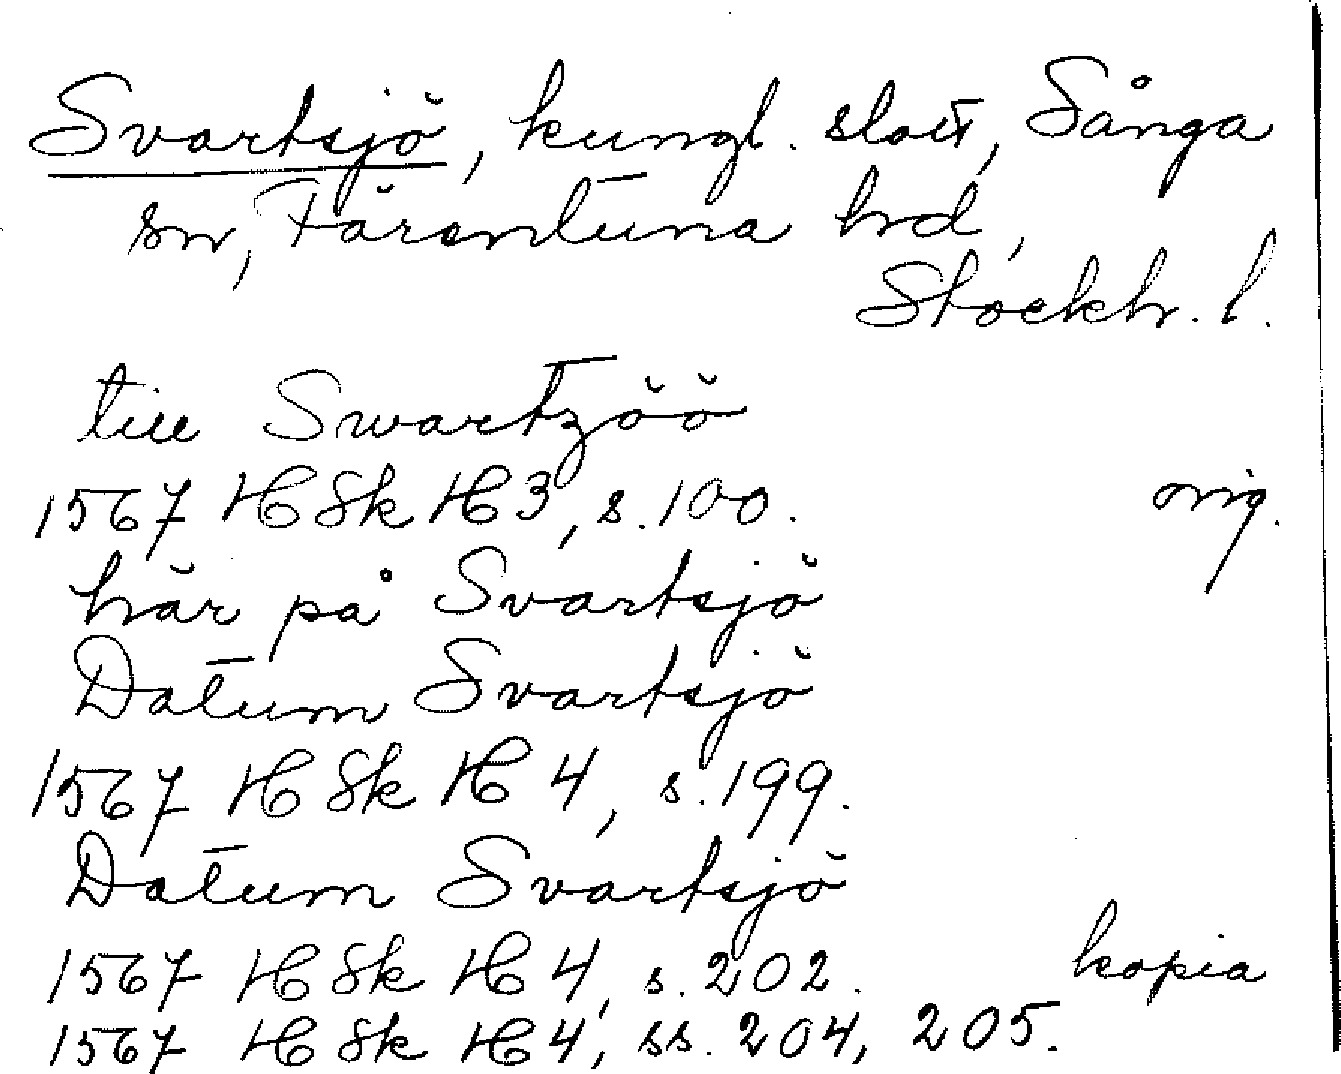 Svartsjö, kungl. slott, Sånga
sn, Färentuna hd,
Stockh. l.
till Swartzöö
1567 HSk H3, s. 100. orig.
här på Svartsjö
Datum Svartsjö
1567 HSk H4, s. 199.
Datum Svartsjö
1567 HSk H4, s. 202. kopia
1567 HSk H4, ss. 204, 205.